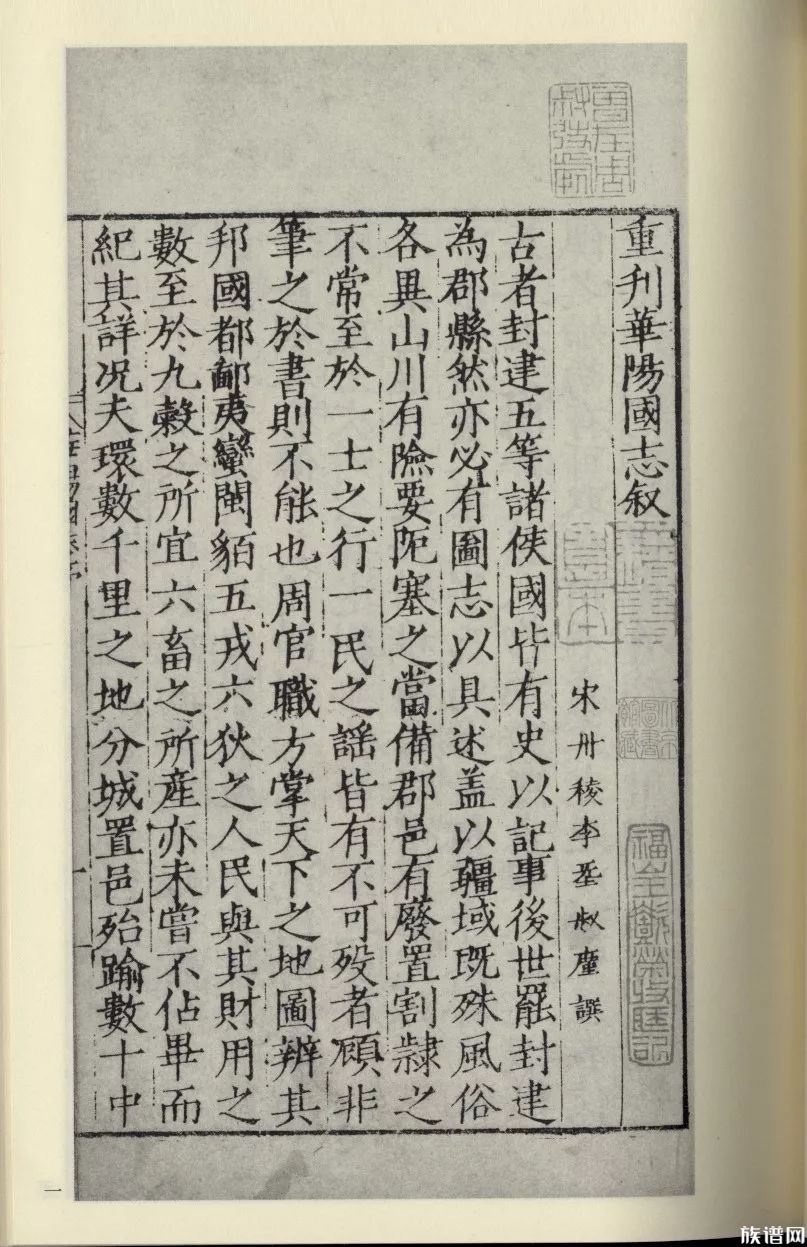 重刋華陽國志叙
宋丹稜李𡌴叔廑譔
古者封建五等諸侯國皆有史以記事後世罷封建
為郡縣然亦必有圖志以具述盖以疆域既殊風俗
各異山川有險要阨塞之當備郡邑有廢置割隷之
不常至於一士之行一民之謡皆有不可殁者顧非
筆之於書則不能也周官職方掌天下之地圖辨其
邦國都鄙夷蠻閩貊五戎六狄之人民與其財用之
數至於九糓之所宜六畜之所産亦未嘗不佔畢而
紀其詳况夫環數千里之地分城置邑殆踰數十中
善本
北京圖書館藏
一
族谱网